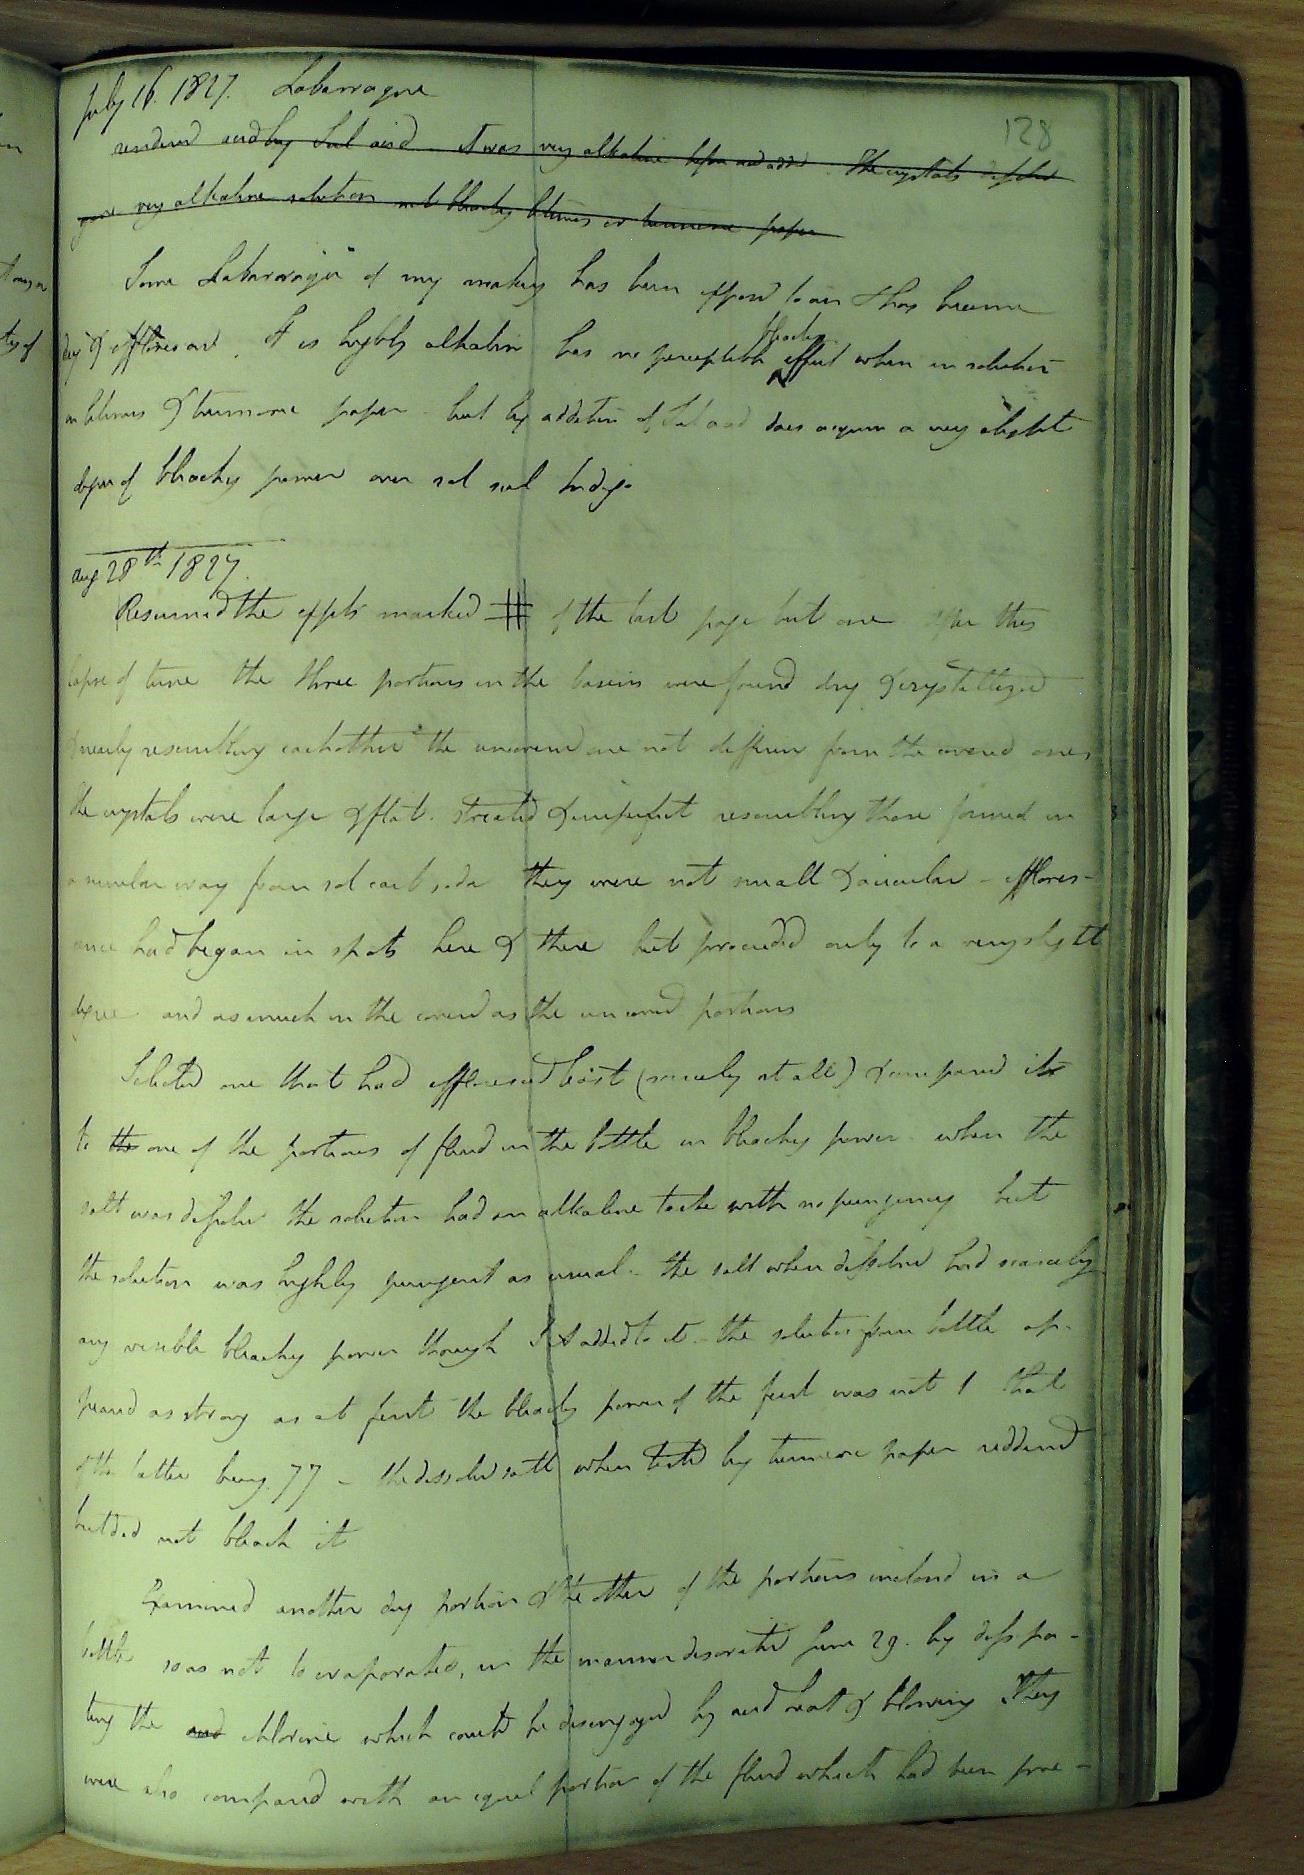 July 16. 1827. Labarraque
128
rendered acid by Sul acid - it was very alkaline before acid added. The crystals dissolved
gave very alkaline solution not bleaching litmus or turmeric paper
Some Labarraque of my making has been exposed to air & has become
dry & efflorescent. It is highly alkaline has no perceptible bleaching effect when in solution
on litmus & turmeric paper - but by addition of Sul acid does acquire a very slight
degree of bleaching power over sol sul Indigo
Aug 28th 1827.
Resumed the expts marked # of the last page but one after this
lapse of time the three portions in the basins were found dry & crystallized
& nearly resembling each other the uncovered one not differing from the covered ones
the crystals were large & flat. striated & imperfect resembling those formed in
a similar way from sol carb soda they were not small & acicular - efflores-
cence had began in spots here & there but proceeded only to a very slight
degree and as much in the covered as the uncovered portions
Selected one that had effloresced least (scarcely at all) & compared it
to the one of the portions of fluid in the bottle in bleaching power. when the
salt was dissolved the solution had an alkaline taste with no pungency but
the solution was highly pungent as usual - the salt when dissolved had scarcely
any visible bleaching power though S A added to it - the solution from bottle ap-
peared as strong as at first the bleaching power of the first was not 1 that
of the latter being 77 - the dissolved salt when tested by turmeric paper reddened
but did not bleach it
Examined another dry portion & the other of the portions inclosed in a
bottle so as not to evaporate, in the manner described June 29. by dissipa-
ting the acid chlorine which could be disengaged by acid heat & blowing They
were also compared with an equal portion of the fluid which had been proe-